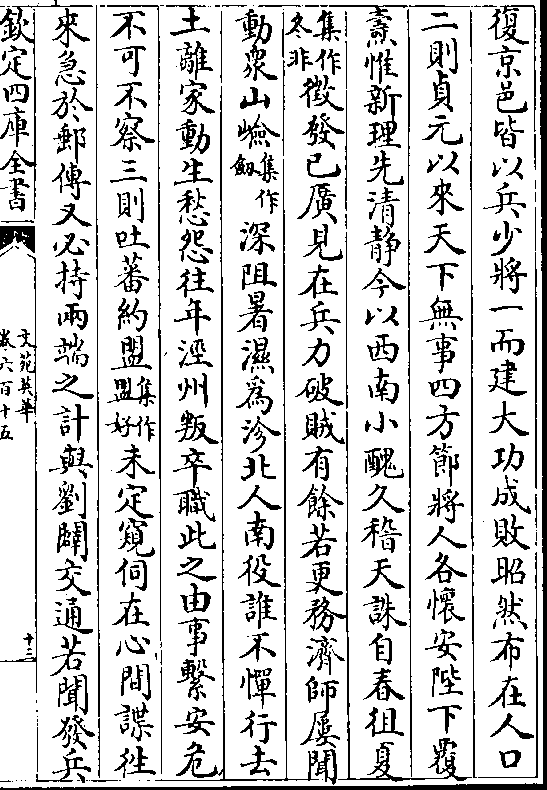 復京邑皆以兵少將一而建大功成敗昭然布在人口
二則貞元以來天下無事四方節將人各懷安陛下覆
燾惟新理先清静今以西南小醜久稽天誅自春徂夏
集作冬非徴發已廣見在兵力破賊有餘若更務濟師屢聞
動衆山嶮集作劔深阻暑濕為沴北人南役誰不憚行去
土離家動生愁怨往年涇州叛卒職此之由事繫安危
不可不察三則吐蕃約盟集作盟好未定窺伺在心間諜徃
來急於郵傳又必持兩端之計與劉闢交通若聞發兵
欽定四庫全書
文苑英華
卷六百十五
十三